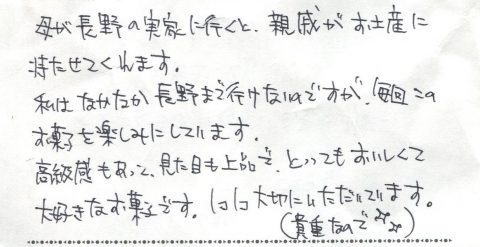 母が長野の実家に行くと、親戚がお土産に
持たせてくれます。
私はなかなか長野まで行けないのですが、毎回この
お菓子を楽しみにしています。
高級感もあって、見た目も上品で、とってもおいしくて
大好きなお菓子です。いつも大切にいただいています。
(貴重なので